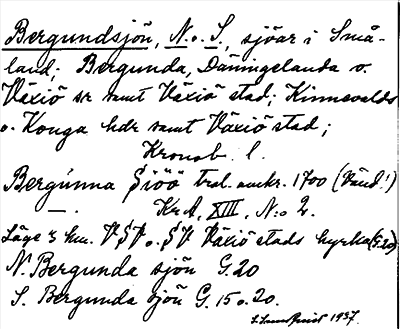 Bergundsjön, N. o. S., sjöar i Små-
land; Bergunda, Däningelanda o.
Växiö sr samt Växiö stad; Kinnevalds
o. Konga hdr samt Växiö stad;
Kronob. l.
Bergúnna Siöö tral. omkr. 1700 (Vänd!)
—. KrA, XIII, N:o 2.
Läge 3 km. VSV o. SV Växiö stads kyrka (G.20)
N. Bergunda sjön G.20
S. Bergunda sjön G. 15 o. 20.
1937.